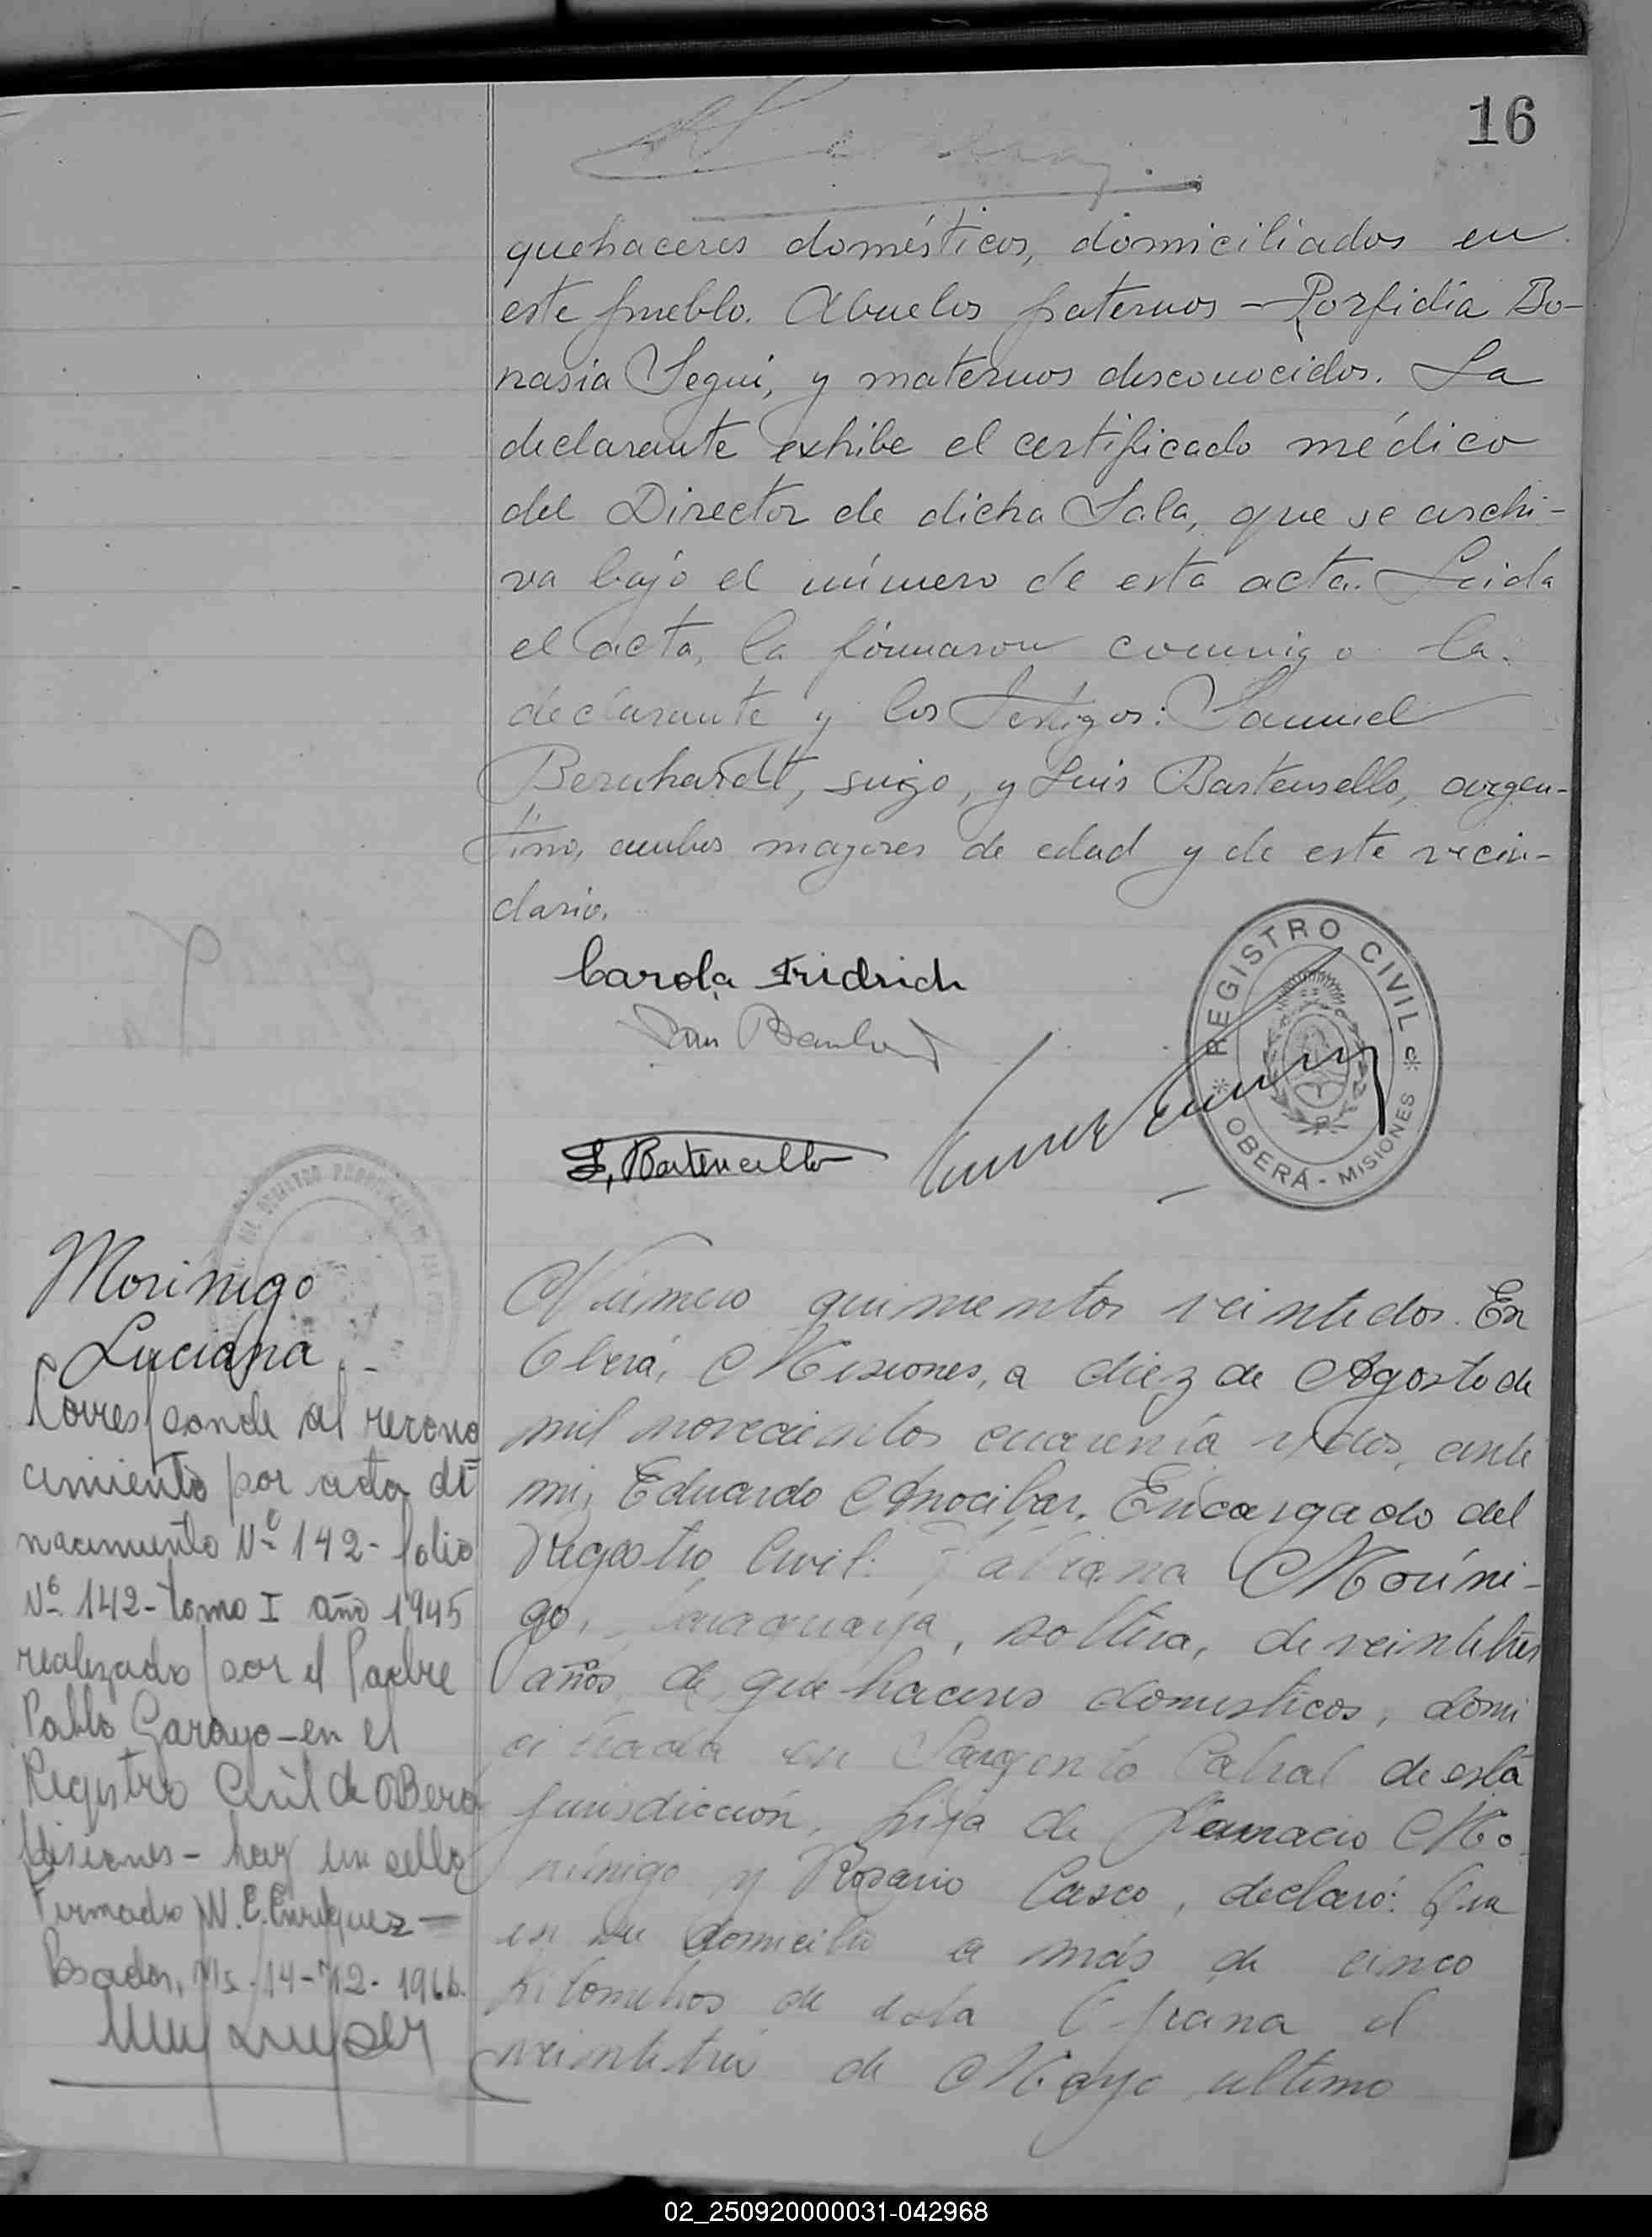 16
quehaceres domésticos, domiciliados en
este pueblo. Abuelos paternos - Porfidia Bo-
nasia Segui, y maternos desconocidos. La
declarante exhibe el certificado médico
del Director de dicha Sala, que se archi-
va bajo el número de esta acta. Leida
el acta, la firmaron conmigo la
declarante y los Testigos: Samuel
Bernhardt, suizo, y Luis Bartensello, argen-
tino, ambos mayores de edad y de este vecin-
dario.
Carola Fridrich
L, Bartencello
REGISTRO CIVIL
OBERÁ - MISIONES
Morinigo
Luciana
Corresponde al recono
cimiento por acta de
nacimiento Nº 142 - folio
Nº 142 - tomo I año 1945
realizado por el Padre
Pablo Garayo - en el
Registro Civil de OBerá
Misiones - hay un sello
Firmado W. E. Enriquez -
Posadas, Ms. 14-12-1966.
Número quinientos veintidos. En
Oberá, Misiones, a diez de Agosto de
mil novecientos cuarenta y dos, ante
mi, Eduardo Amocibar, Encargado del
Registro Civil: Morini-
go, paraguaya, soltera, de veintitres
años, de quehaceres domesticos, domi
ciliada en Sargento Cabral de esta
jurisdicción, hija de Mo
rinigo y Rosario Casco, declaró: Que
en su domicilio a más de cinco
kilometros de esta Oficina el
veintitres de Mayo ultimo
02_250920000031-042968